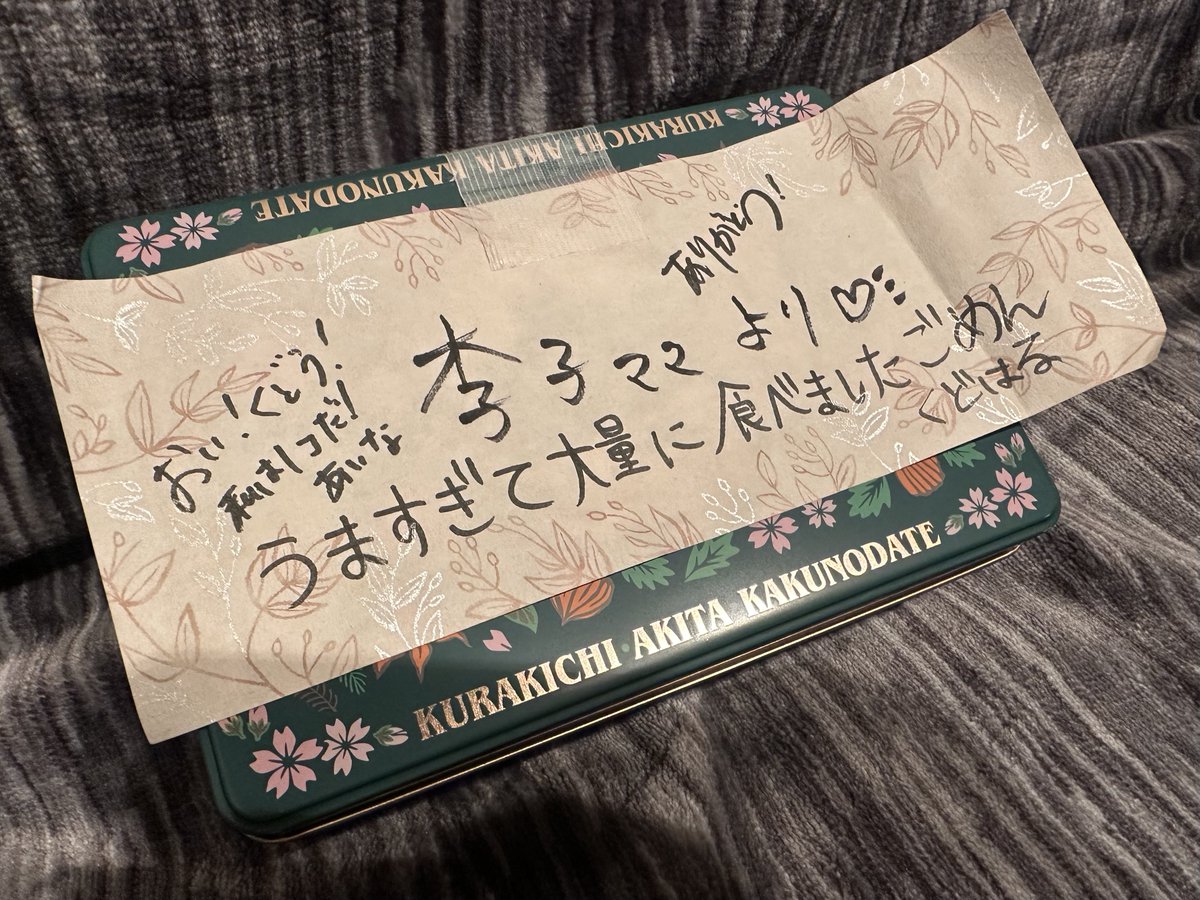 KURAKICHI AKITA KAKUNODATE
ありがとう!
李子ママ より♡
おい!くどう!
私はリコだ!
あいな
うますぎて大量に食べましたごめん
くどはる
KURAKICHI・AKITA KAKUNODATE